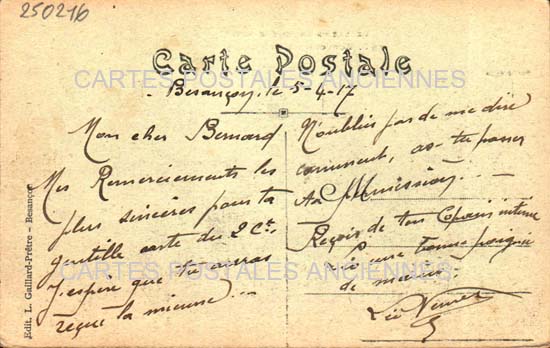 250216
Carte Postale
CARTES POSTALES ANCIENNES
Besançon, le 5-4-17
Mon cher Bernard
Mes Remerciements les
plus sincères pour ta
gentille carte du 2 Ct.
J'espère que tu auras
reçue la mienne...
N'oublies pas de me dire
comment, as-tu passer
ta Permission...
Reçois de ton Copain intime
une franche poignée
de mains.
CARTES POSTALES ANCIENNES
Edit. L. Gaillard-Prêtre - Besançon